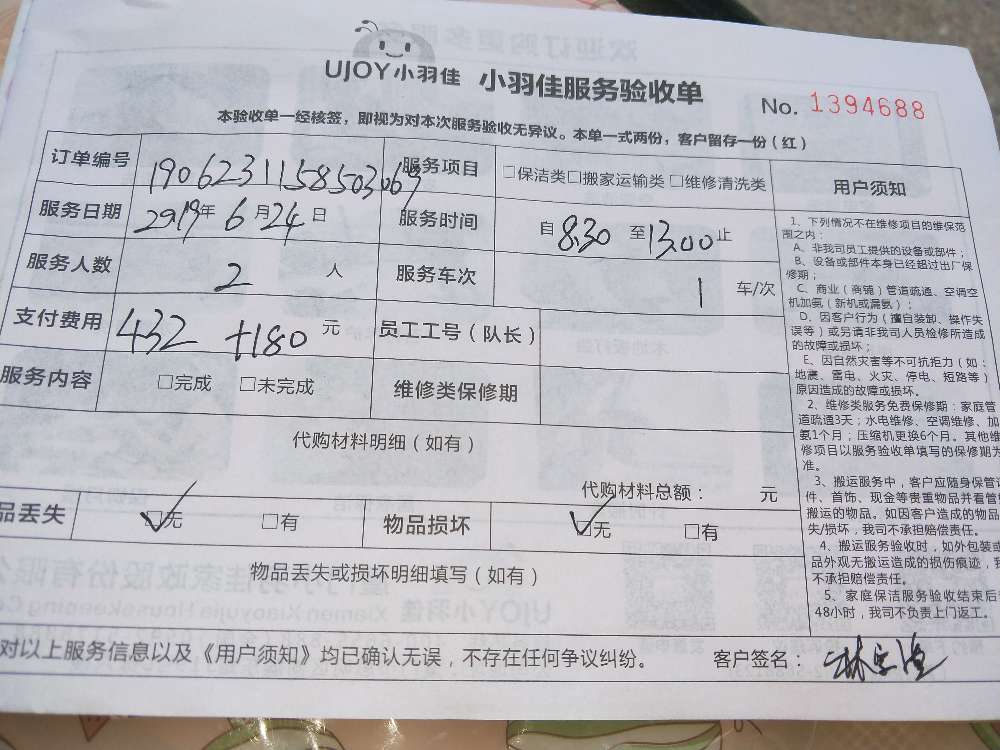 UJOY小羽佳 小羽佳服务验收单 No. 1394688
本验收单一经核签，即视为对本次服务验收无异议。本单一式两份，客户留存一份（红）
订单编号 190623115850306 服务项目 □保洁类□搬家运输类 □维修清洗类
服务日期 2019年 6月24日 服务时间 自 8:30 至 13:00 止
服务人数 2 人 服务车次 1 车/次
支付费用 432 +180 元 员工工号（队长）
服务内容 □完成 □未完成 维修类保修期
代购材料明细（如有）
代购材料总额： 元
品丢失 ☑无 □有 物品损坏 ☑无 □有
物品丢失或损坏明细填写（如有）
用户须知
1、下列情况不在维修项目的维保范
围之内：
A、非我司员工提供的设备或部件；
B、设备或部件本身已经超过出厂保
修期；
C、商业（商铺）管道疏通、空调空
机加氨（新机或漏氨）；
D、因客户行为（擅自装卸、操作失
误等）或另请非我司人员检修所造成
的故障或损坏；
E、因自然灾害等不可抗拒力（如：
地震、雷电、火灾、停电、短路等）
原因造成的故障或损坏。
2、维修类服务免费保修期：家庭管
道疏通3天；水电维修、空调维修、加
氨1个月；压缩机更换6个月。其他维
修项目以服务验收单填写的保修期为
准。
3、搬运服务中，客户应随身保管
件、首饰、现金等贵重物品并看管
搬运的物品。如因客户造成的物品
失/损坏，我司不承担赔偿责任。
4、搬运服务验收时，如外包装或
品外观无搬运造成的损伤痕迹，我
不承担赔偿责任。
5、家庭保洁服务验收结束后
48小时，我司不负责上门返工。
对以上服务信息以及《用户须知》均已确认无误，不存在任何争议纠纷。 客户签名：